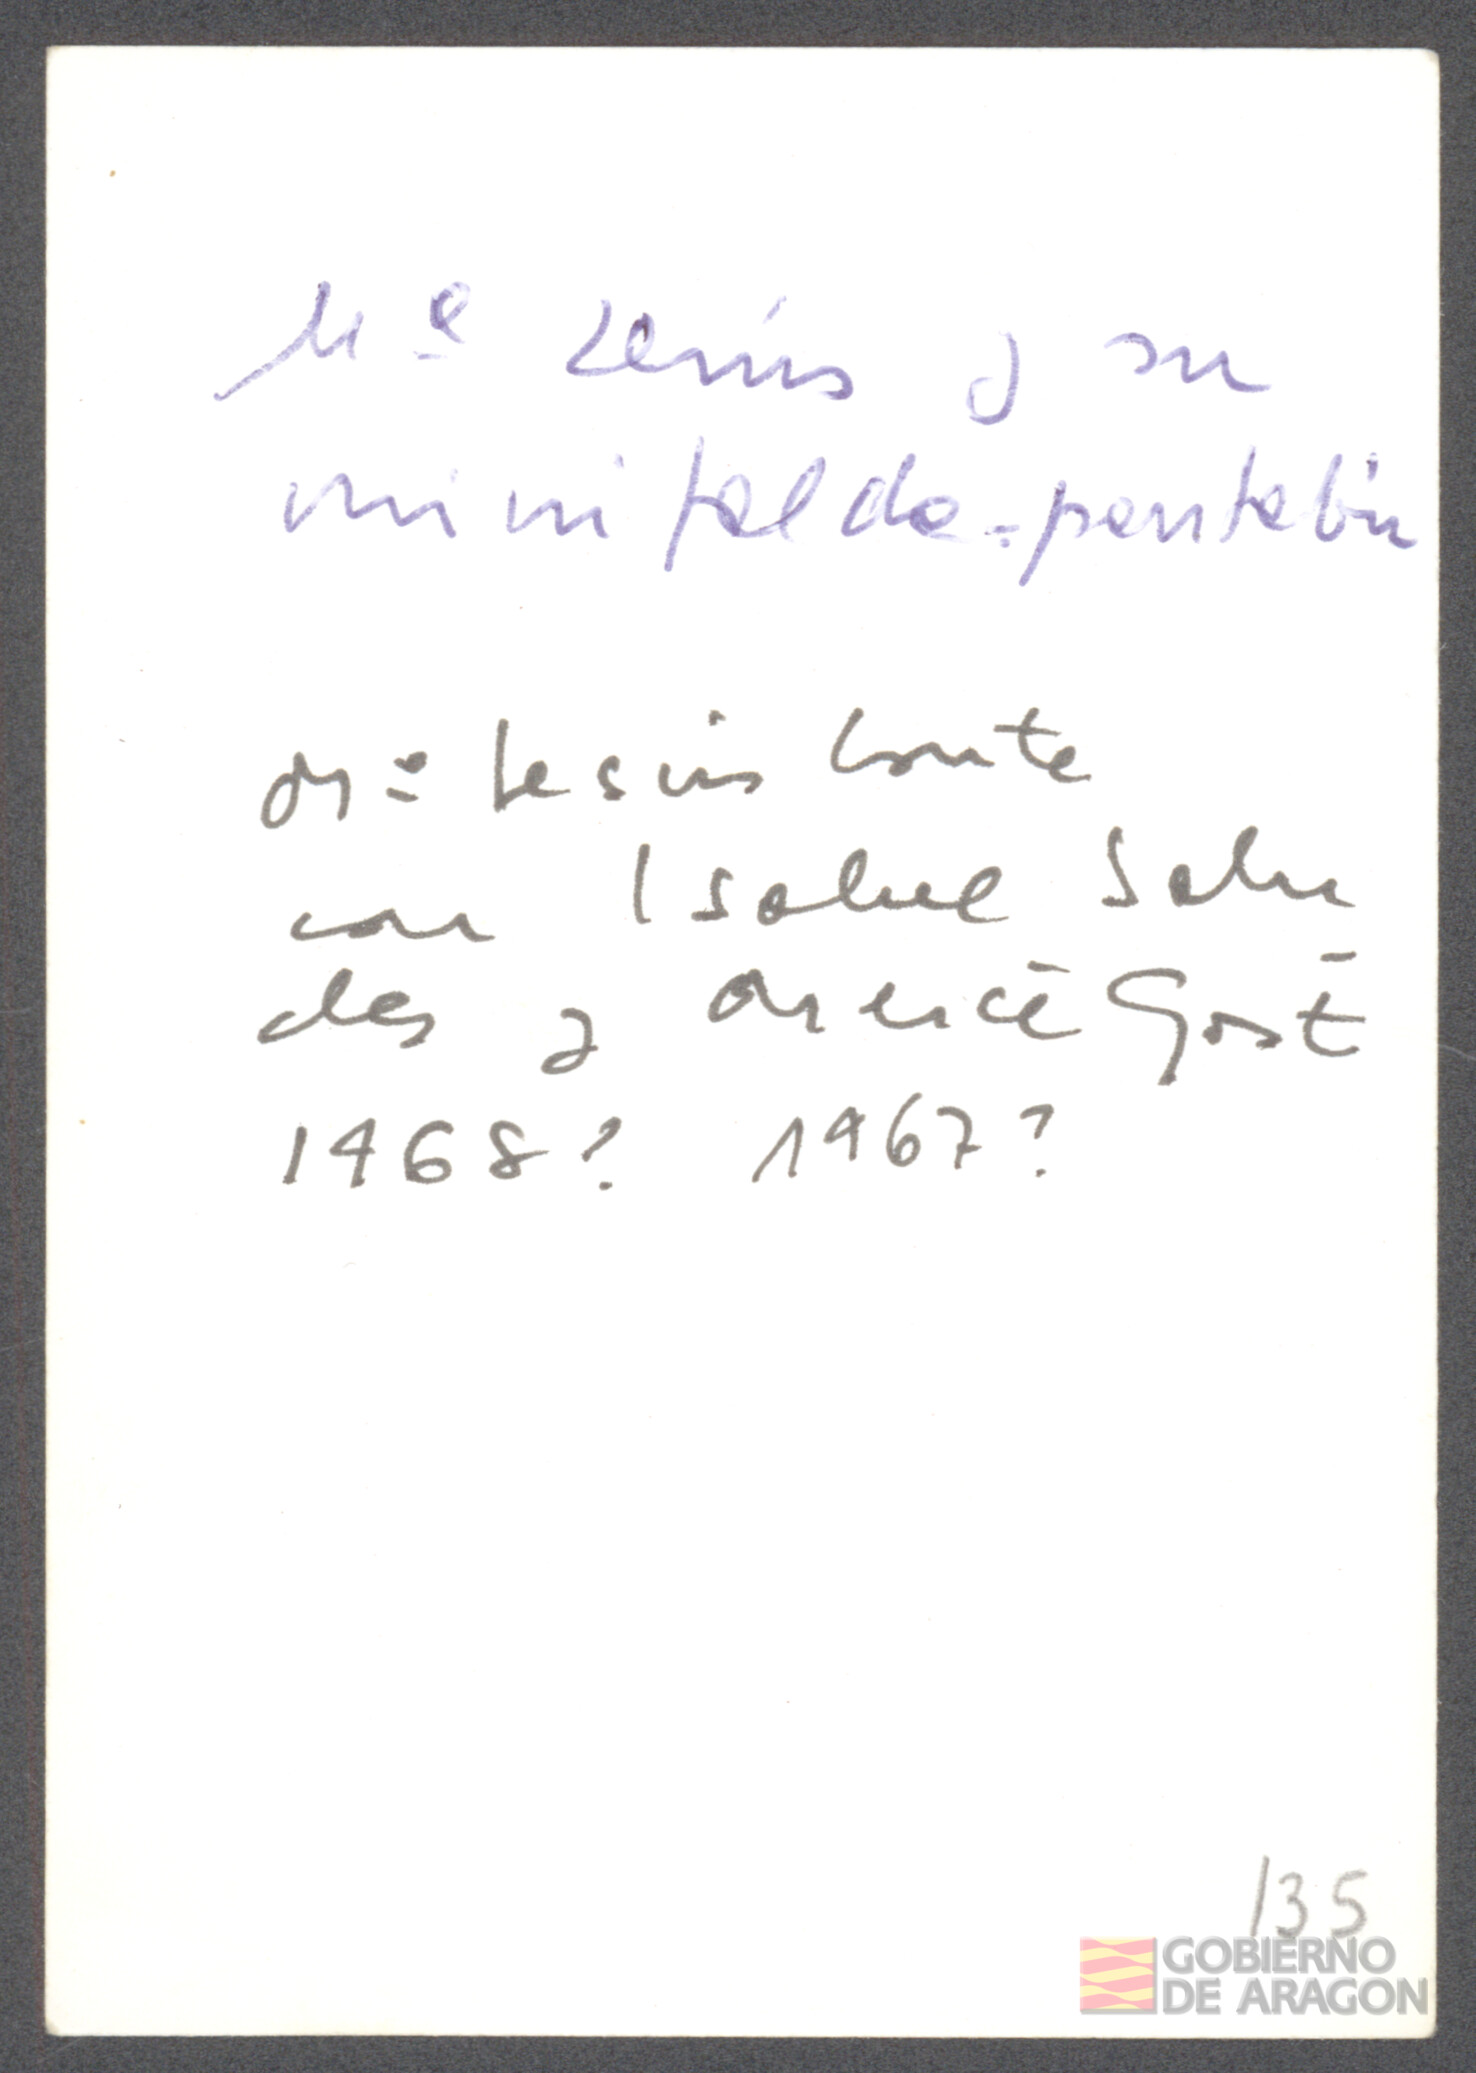 Mª Jesús y su
minifalda-pantalón
Mª Jesús Conte
con Isabel Salu
des y Mercè Gost
1968? 1967?
135
GOBIERNO
DE ARAGON